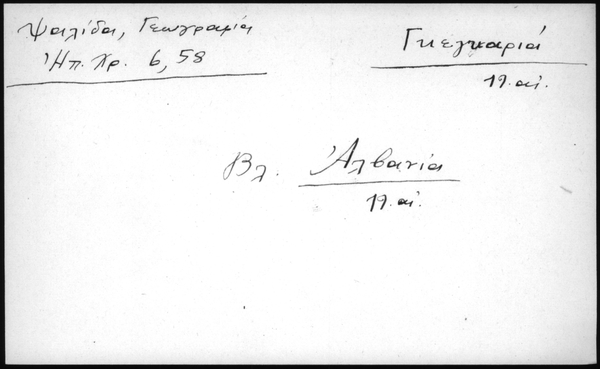 Ψαλίδα, Γεωγραφία
Ἠπ. Χρ. 6, 58
Γκεγκαριά
19. αἰ.
Βλ. Ἀλβανία
19. αἰ.